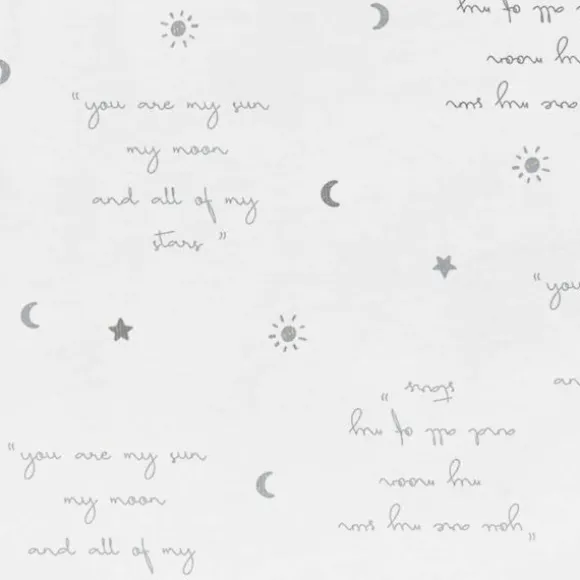 “you are my sun
my moon
and all of my
stars”
and all of my
my moon
my sun
“you
an
“you are my sun
my moon
and all of my
“you are my sun
my moon
and all of my
stars”